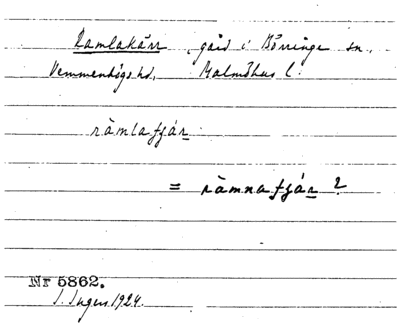 Ramlakärr, gård i Börringe sn,
Vemmenhögs hd, Malmöhus l.
ràmlafjá̱r
= ràmnafjá̱r ?
Nr 5862.
I. Ingers 1924.